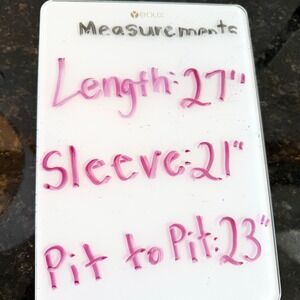 Measurements
Length: 27"
Sleeve: 21"
Pit to Pit: 23"